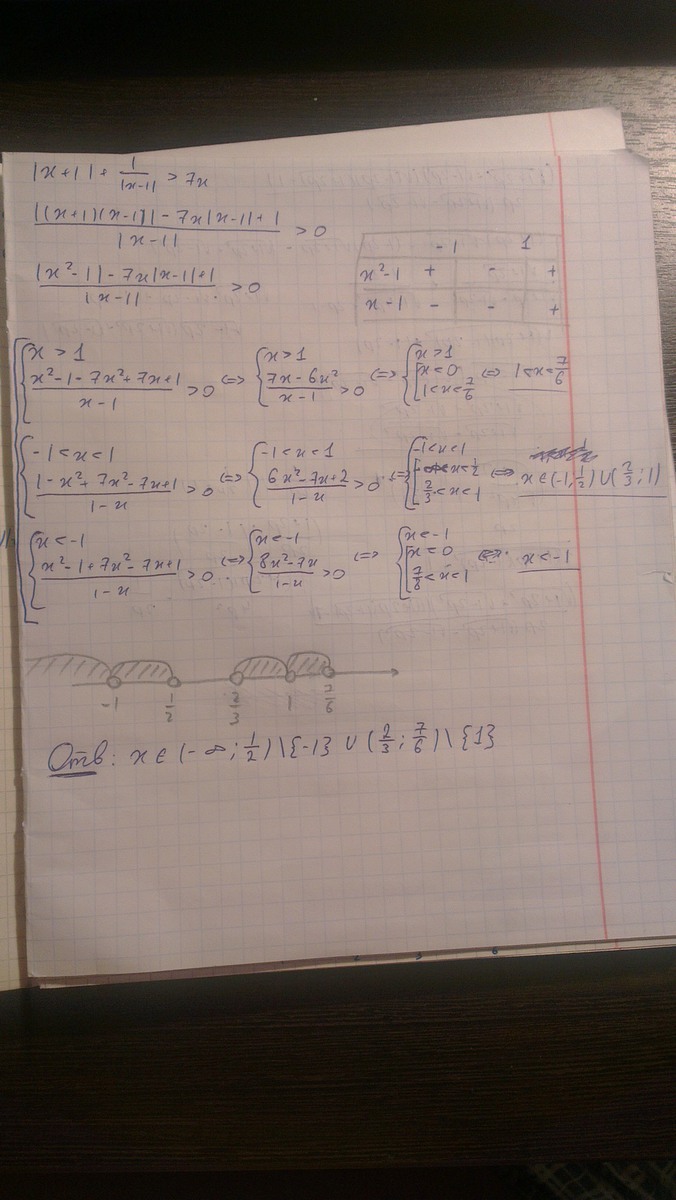 |x+1| + 1/|x-1| > 7x
(|(x+1)(x-1)| - 7x|x-1| + 1)/|x-1| > 0
(|x²-1| - 7x|x-1| + 1)/|x-1| > 0
-1 1
x²-1 + - +
x-1 - - +
{ x > 1; (x²-1-7x²+7x+1)/(x-1) > 0 <=> { x>1; (7x-6x²)/(x-1) > 0 <=> { x>1; [ x<0; 1<x<7/6 <=> 1<x<7/6
{ -1<x<1; (1-x²+7x²-7x+1)/(1-x) > 0 <=> { -1<x<1; (6x²-7x+2)/(1-x) > 0 <=> { -1<x<1; [ x<1/2; 2/3<x<1 <=> x∈(-1,1/2)∪(2/3;1)
{ x<-1; (x²-1+7x²-7x+1)/(1-x) > 0 <=> { x<-1; (8x²-7x)/(1-x) > 0 <=> { x<-1; [ x=0; 7/8<x<1 <=> x<-1
-1 1/2 2/3 1 7/6
Отв: x ∈ (-∞; 1/2)\{-1} ∪ (2/3; 7/6)\{1}